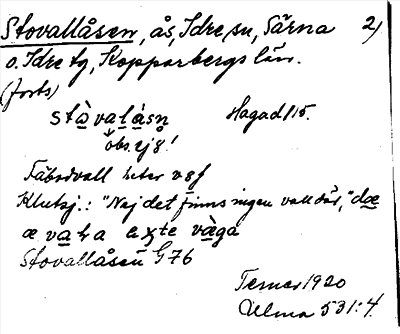 Stovallåsen, ås, Idre sn, Särna 2)
o. Idre tg, Kopparbergs län.
(forts)
stàvalásn Hagad 15.
obs. ej 8!
Fäbodvall heter
Klutsj.: "Nej det finns ingen vall där,"
Stovallåsen G76
Terner 1920
Ulma 531:4.